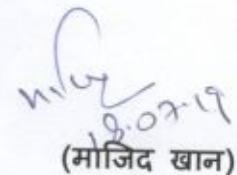 18.07.19
(माजिद खान)